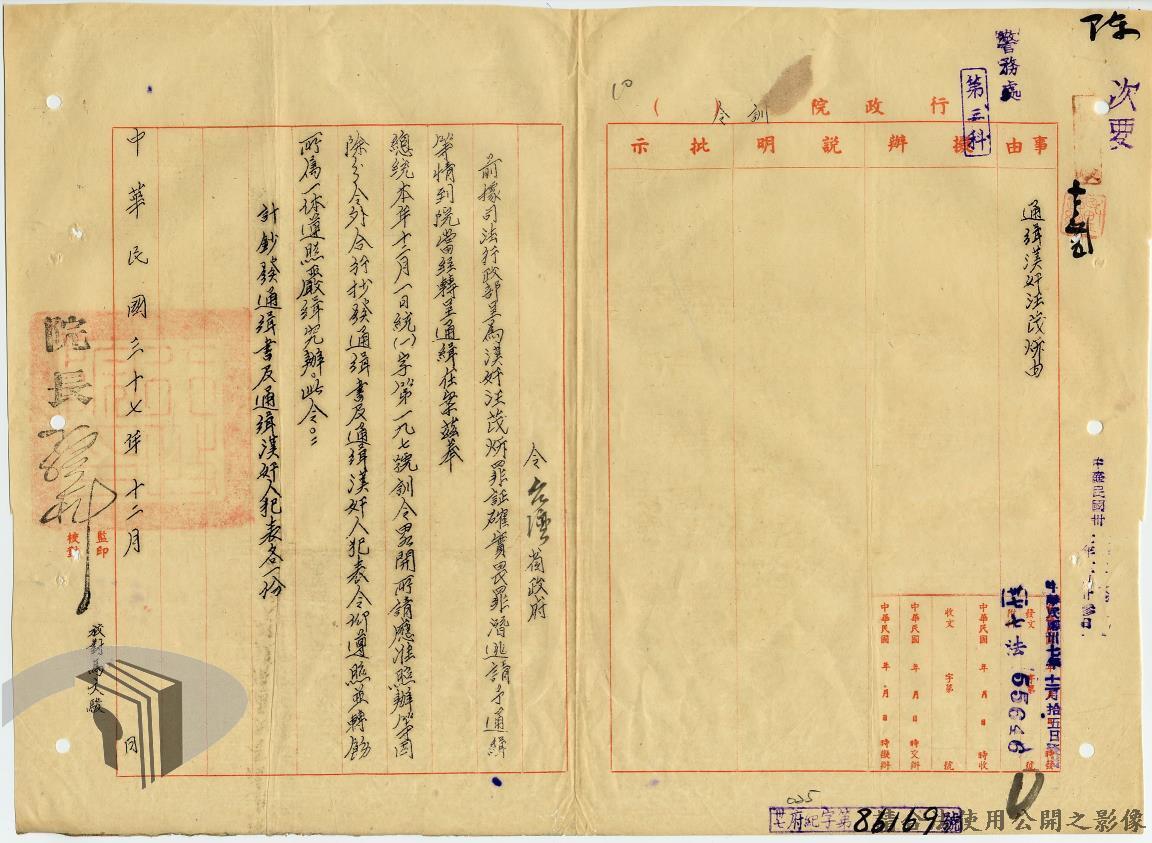 陈
次要
警務處
第三科
行政院（訓令）
事由
擬辦
說明
批示
通緝漢奸汪茂炘由
中華民國卅七年十二月拾五日發
發文
卅七法
55636
號
中華民國 年 月 日 時收
收文 字第 號
中華民國 年 月 日 時交辦
中華民國 年 月 日 時擬辦
令台灣省政府
前據司法行政部呈為漢奸汪茂炘罪証確實畏罪潛逃請予通緝
等情到院當經轉呈通緝在案茲奉
總統本年十二月一日統(一)字第一九七號訓令畧開所請應准照辦等因
除分令外合行抄發通緝書及通緝漢奸人犯表令仰遵照並轉飭
所屬一体遵照嚴緝究辦此令。
計鈔發通緝書及通緝漢奸人犯表各一份
中華民國三十七年十二月 日
院長
監印
校對
校對馬天駿
025
府紀字第86169號
使用公開之影像